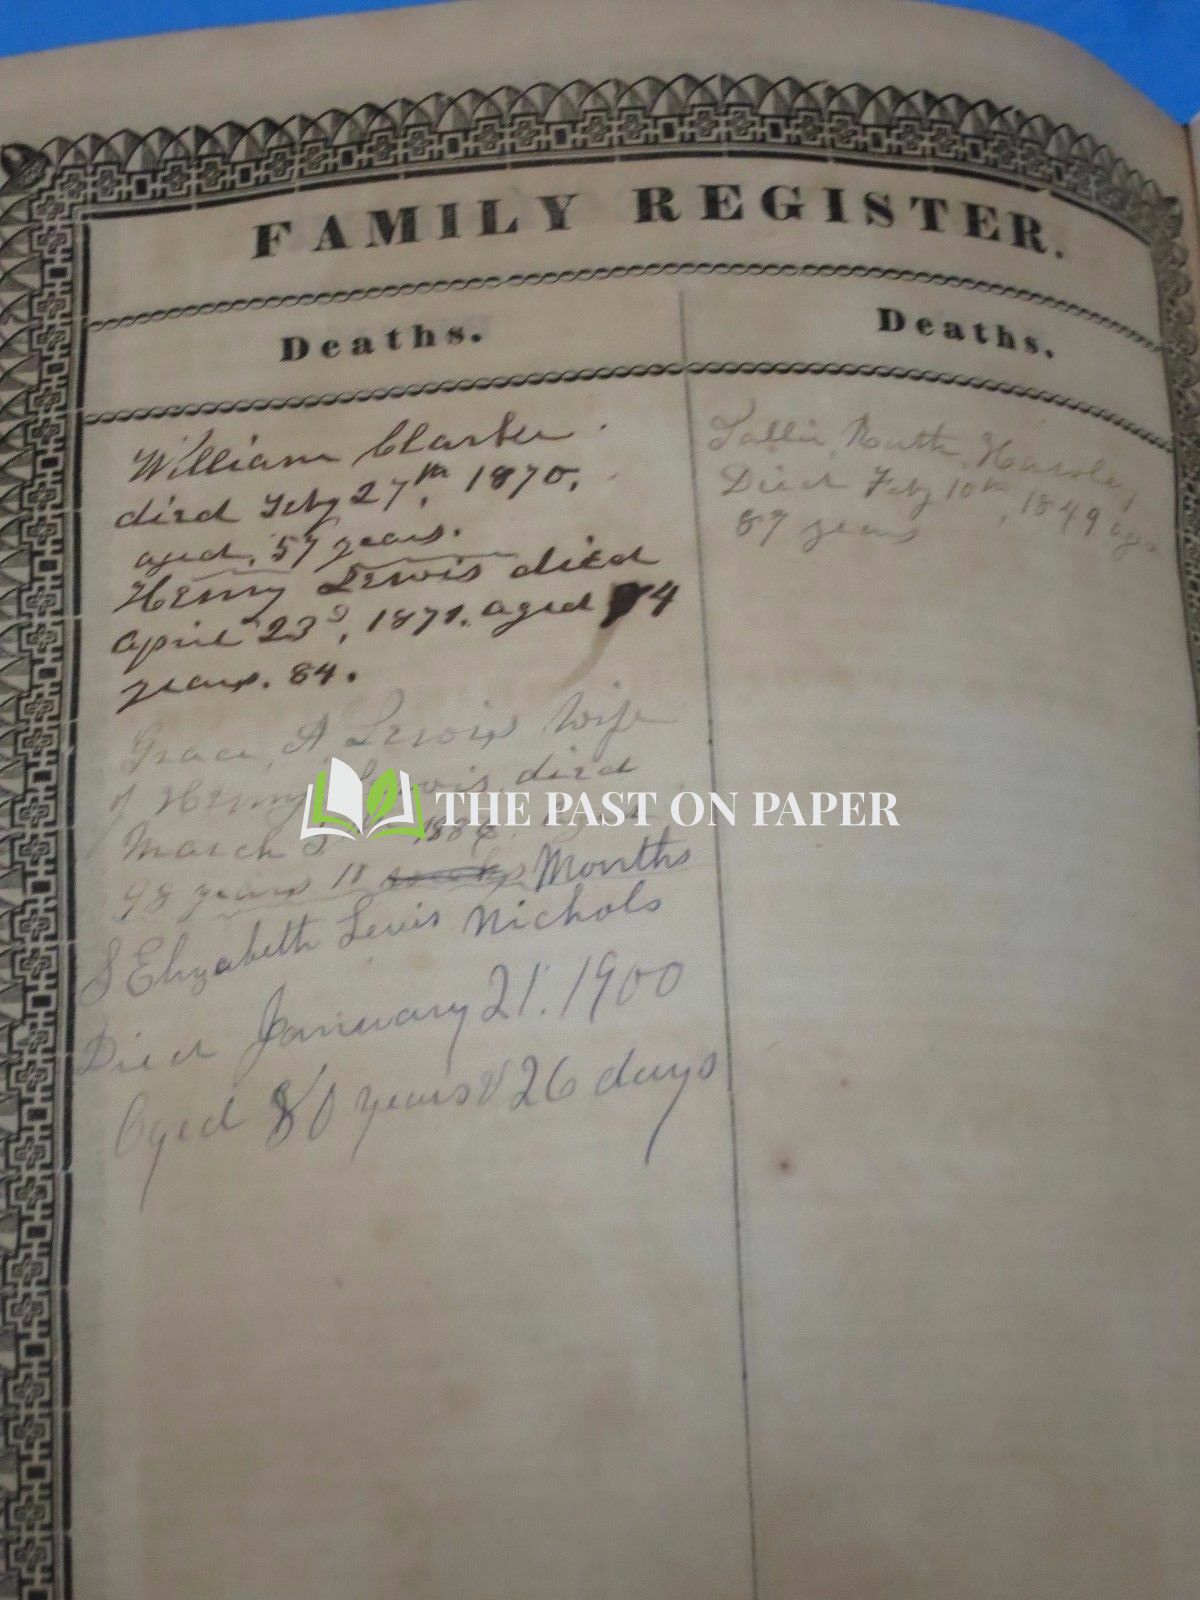 FAMILY REGISTER.
Deaths.
William Clarke
died Feby 27th, 1870,
aged, 57 years.
Henry Lewis died
april 23d, 1871. aged 84
years. 84.
Grace A Lewis Wife
of Henry Lewis, died
March 5th 188 aged
98 years 10 weeks Months
S Elizabeth Lewis Nichols
Died January 21. 1900
Aged 80 years & 26 days
Deaths.
Ruth
Died Feby 10th, 1849 aged
87 years
THE PAST ON PAPER